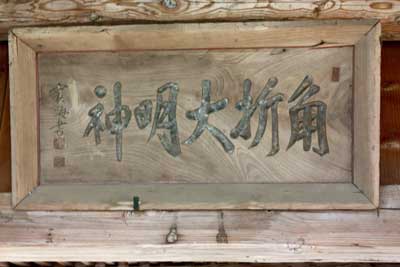 角折大明神